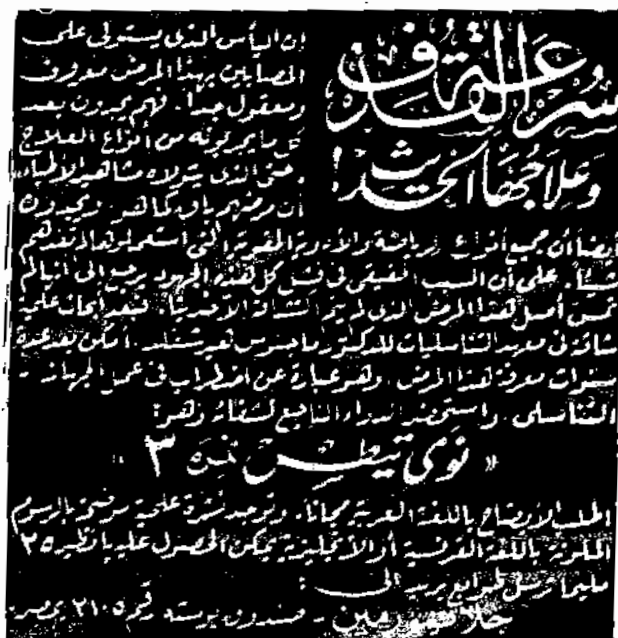 سرعة القذف
وعلاجها الحديث!
إن اليأس الذى يستولى على
المصابين بهذا المرض معروف
ومعقول جداً. فهم يجدون بعد
كل ما يجربونه من أنواع العلاج
وحتى الذى يتولاه مشاهير الأطباء
أن مرضهم باق كما هو ويجدون
أيضاً أن جميع أنواع الرياضة والأدوية المقوية التى استعملوها لم تفدهم
شيئاً. على أن السبب الحقيقى فى فشل كل هذه الجهود يرجع إلى انها لم
تمس أصل هذا المرض الذى لم يتم اكتشافه إلا حديثاً. فبعد أبحاث علمية
شاقة فى معهد التناسليات للدكتور ماجنوس هيرشفلد. أمكن بعد عدة
سنوات معرفة هذا المرض. وهو عبارة عن اضطراب فى عمل الجهاز
التناسلى. واستحضر الدواء الناجع لشفائه وهو:
« نومى تيطس نمرة ٣ »
اطلب الإيضاح باللغة العربية مجاناً. وتوجد نشرة علمية موضحة بالرسوم
الملونة باللغة الفرنسية أو الانجليزية يمكن الحصول عليها نظير ٢٥
مليما ترسل طوابع بريد الى:
جلا هورمين - صندوق بوستة رقم ٢١٠٥ بمصر